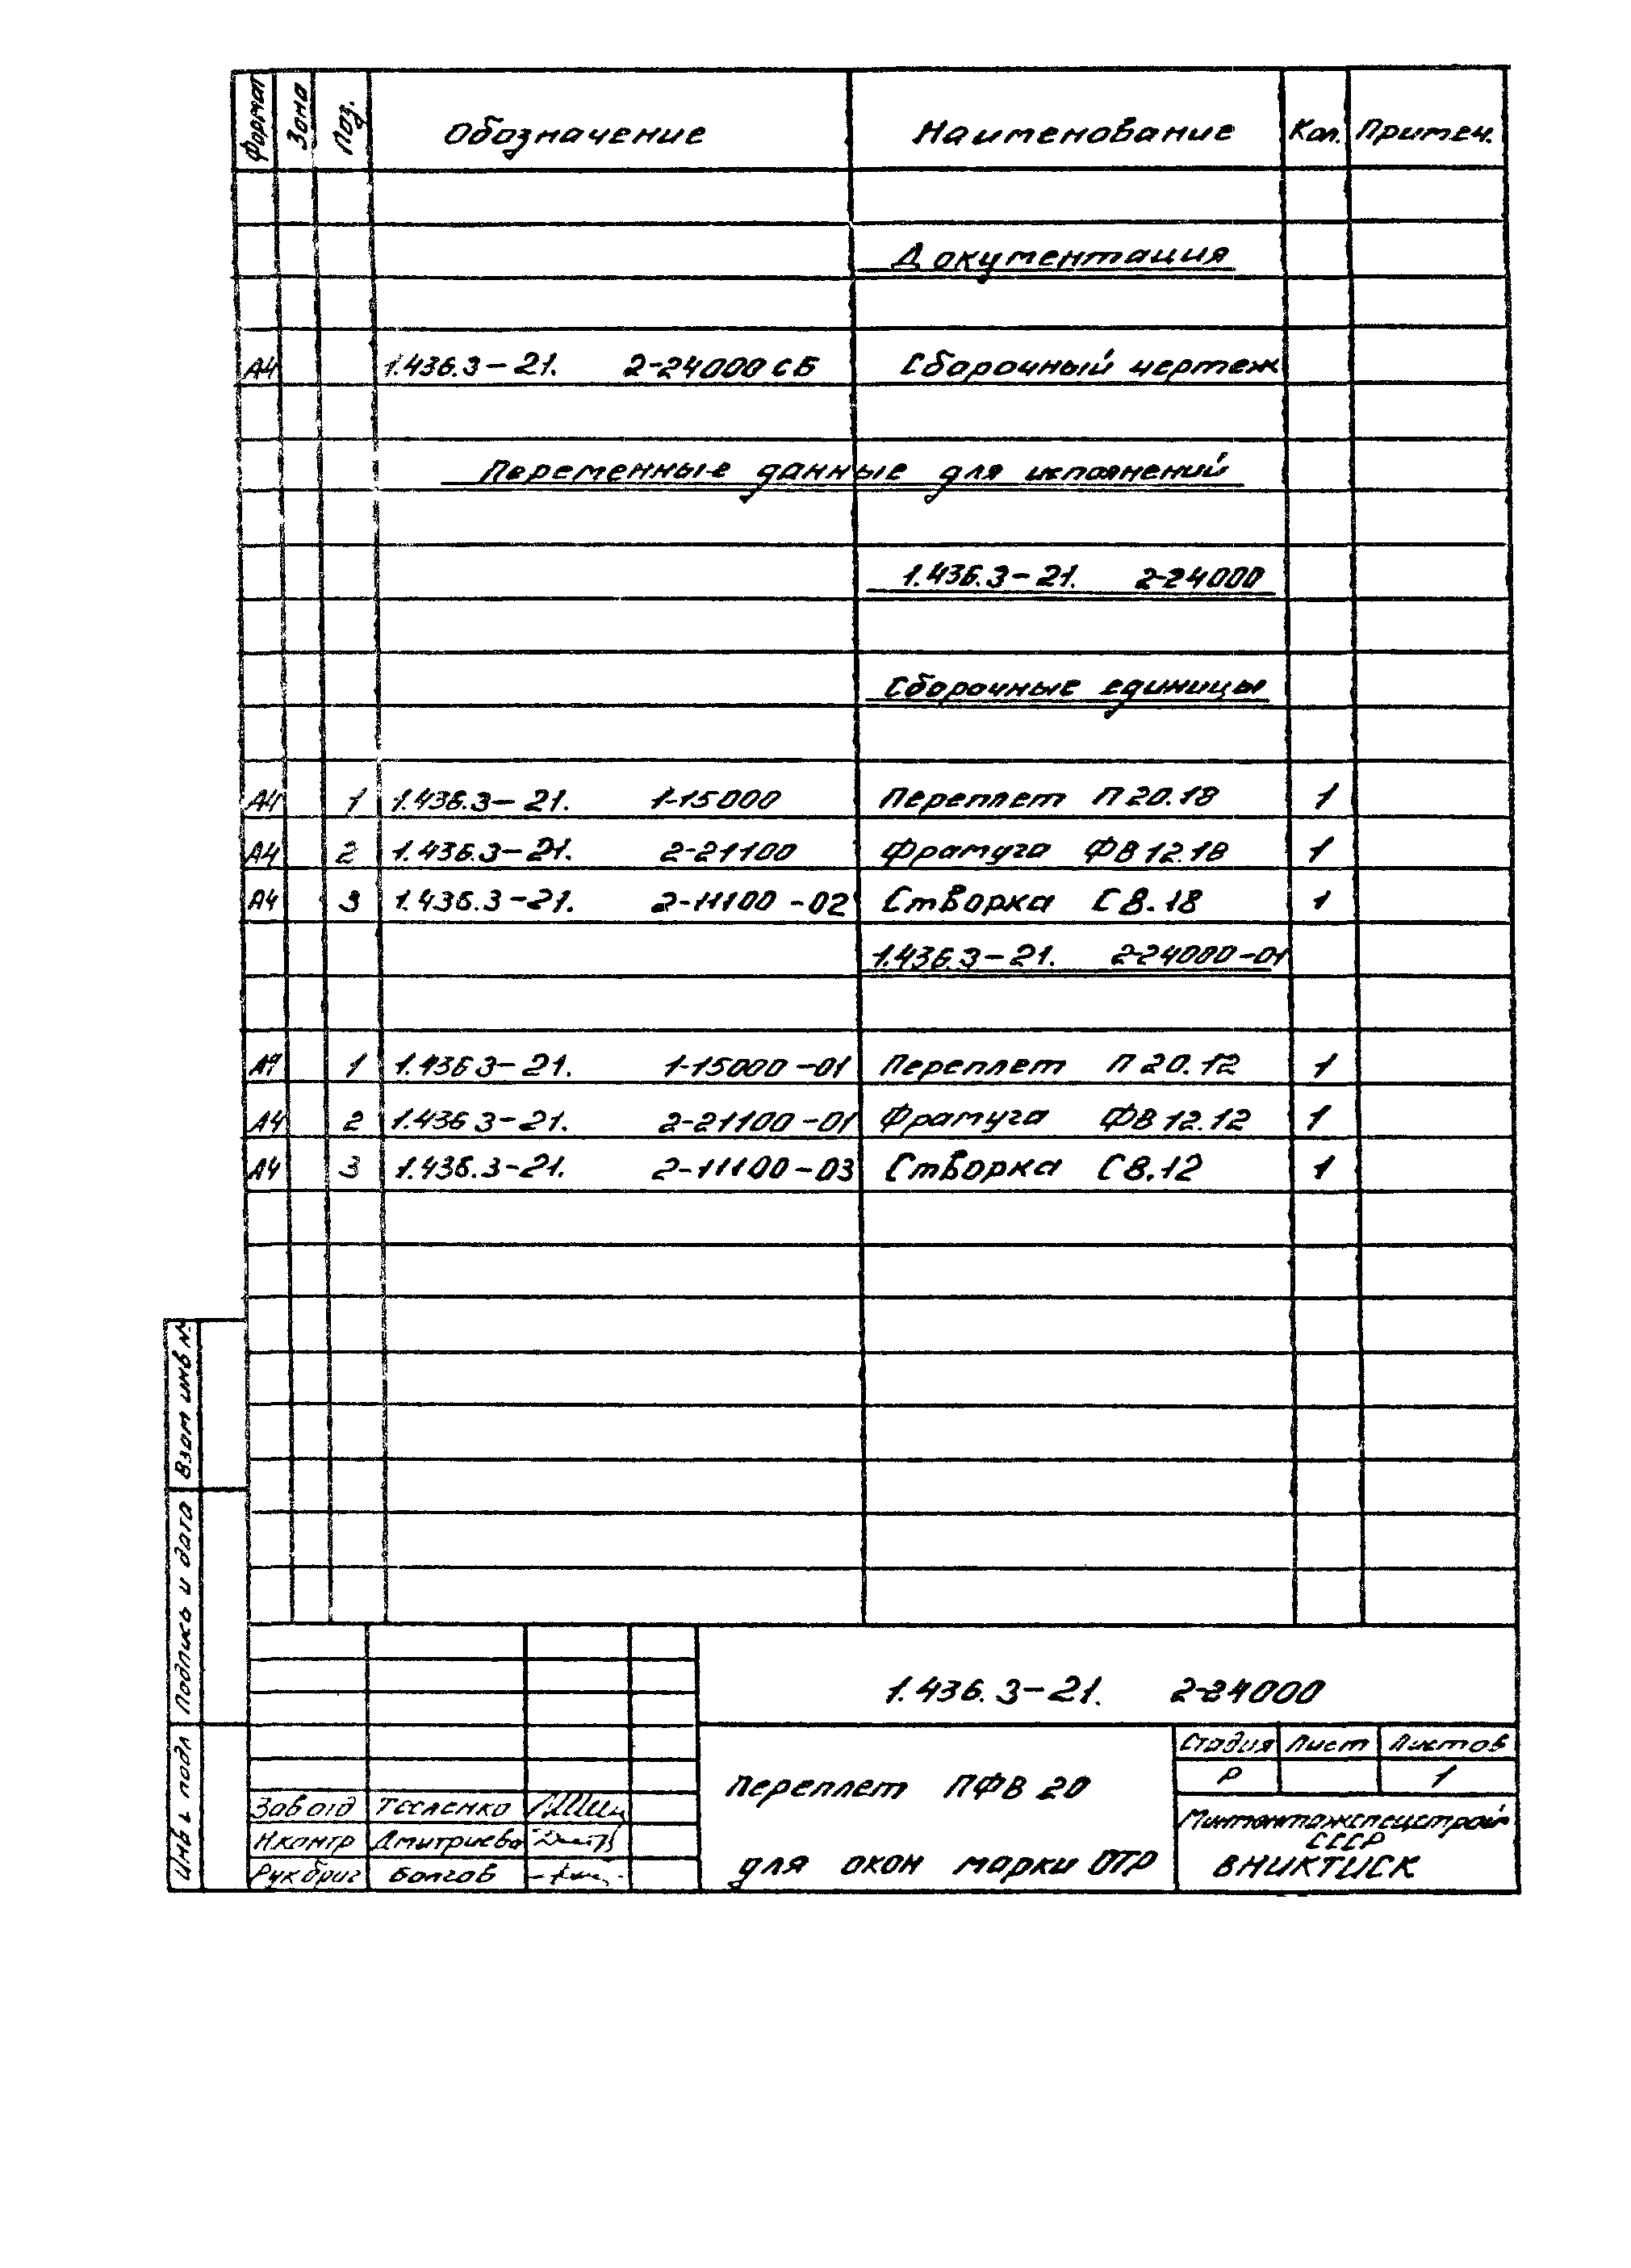 Формат Зона Поз. Обозначение Наименование Кол. Примеч.
Документация
А4 1.436.3-21. 2-24000 СБ Сборочный чертеж
Переменные данные для исполнений
1.436.3-21. 2-24000
Сборочные единицы
А4 1 1.436.3-21. 1-15000 Переплет П 20.18 1
А4 2 1.436.3-21. 2-21100 Фрамуга ФВ 12.18 1
А4 3 1.436.3-21. 2-11100-02 Створка С 8.18 1
1.436.3-21. 2-24000-01
А4 1 1.436 3-21. 1-15000-01 Переплет П 20.12 1
А4 2 1.436 3-21. 2-21100-01 Фрамуга ФВ 12.12 1
А4 3 1.436.3-21. 2-11100-03 Створка С 8.12 1
Взам инв №
Подпись и дата
Инв № подл
1.436.3-21. 2-24000
Переплет ПФВ 20
для окон марки ОТР
Стадия Лист Листов
Р 1
Минмонтажспецстрой
СССР
ВНИКТИСК
Зав отд Тесленко
Н.контр Дмитриева
Рук бриг Болгов